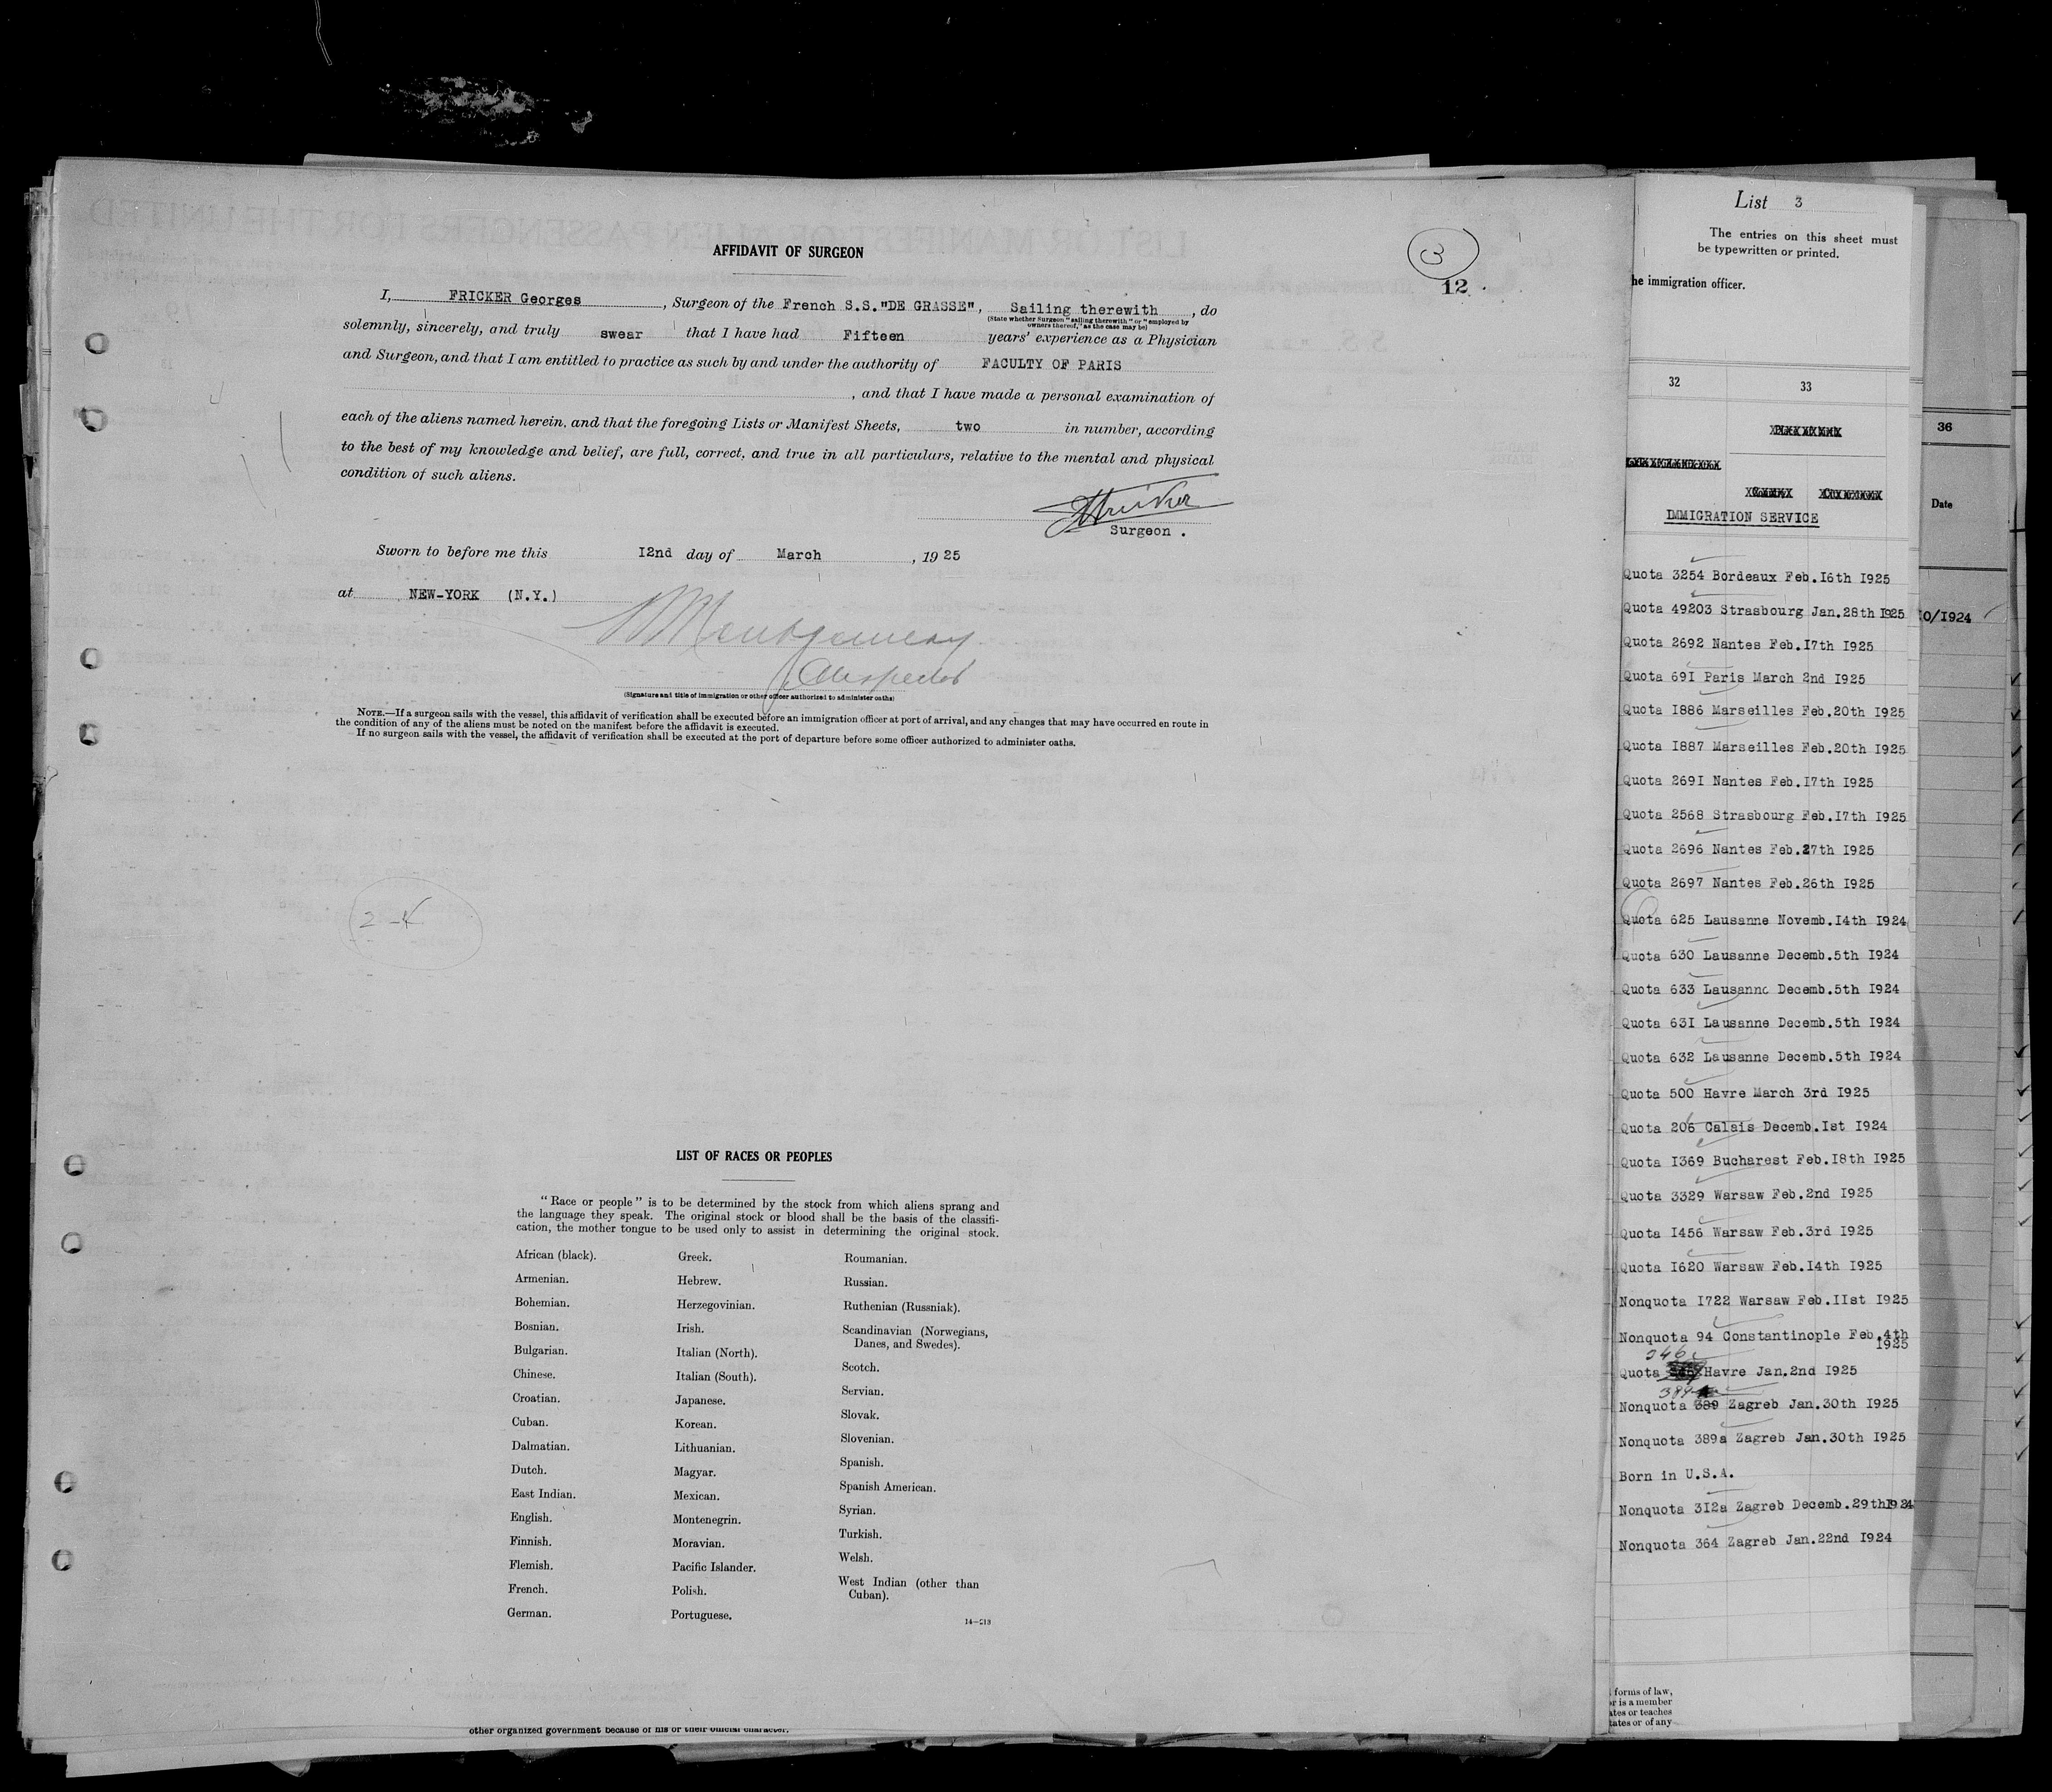 AFFIDAVIT OF SURGEON
3
12
I, FRICKER Georges, Surgeon of the French S.S."DE GRASSE", Sailing therewith, do
(State whether Surgeon "sailing therewith" or "employed by
owners thereof," as the case may be)
solemnly, sincerely, and truly swear that I have had Fifteen years' experience as a Physician
and Surgeon, and that I am entitled to practice as such by and under the authority of FACULTY OF PARIS
, and that I have made a personal examination of
each of the aliens named herein, and that the foregoing Lists or Manifest Sheets, two in number, according
to the best of my knowledge and belief, are full, correct, and true in all particulars, relative to the mental and physical
condition of such aliens.
Fricker
Surgeon .
Sworn to before me this I2nd day of March, 1925
at NEW-YORK (N.Y.)
Montgomery
Inspector
(Signature and title of immigration or other officer authorized to administer oaths)
NOTE.—If a surgeon sails with the vessel, this affidavit of verification shall be executed before an immigration officer at port of arrival, and any changes that may have occurred en route in
the condition of any of the aliens must be noted on the manifest before the affidavit is executed.
If no surgeon sails with the vessel, the affidavit of verification shall be executed at the port of departure before some officer authorized to administer oaths.
LIST OF RACES OR PEOPLES
"Race or people" is to be determined by the stock from which aliens sprang and
the language they speak. The original stock or blood shall be the basis of the classifi-
cation, the mother tongue to be used only to assist in determining the original stock.
African (black).
Armenian.
Bohemian.
Bosnian.
Bulgarian.
Chinese.
Croatian.
Cuban.
Dalmatian.
Dutch.
East Indian.
English.
Finnish.
Flemish.
French.
German.
Greek.
Hebrew.
Herzegovinian.
Irish.
Italian (North).
Italian (South).
Japanese.
Korean.
Lithuanian.
Magyar.
Mexican.
Montenegrin.
Moravian.
Pacific Islander.
Polish.
Portuguese.
Roumanian.
Russian.
Ruthenian (Russniak).
Scandinavian (Norwegians,
Danes, and Swedes).
Scotch.
Servian.
Slovak.
Slovenian.
Spanish.
Spanish American.
Syrian.
Turkish.
Welsh.
West Indian (other than
Cuban).
14—213
other organized government because of his or their official character.
List 3
The entries on this sheet must
be typewritten or printed.
he immigration officer.
32
33
IMMIGRATION SERVICE
Quota 3254 Bordeaux Feb.I6th I925
Quota 49203 Strasbourg Jan.28th I925
Quota 2692 Nantes Feb.I7th I925
Quota 69I Paris March 2nd I925
Quota I886 Marseilles Feb.20th I925
Quota I887 Marseilles Feb.20th I925
Quota 269I Nantes Feb.I7th I925
Quota 2568 Strasbourg Feb.I7th I925
Quota 2696 Nantes Feb.27th I925
Quota 2697 Nantes Feb.26th I925
Quota 625 Lausanne Novemb.I4th I924
Quota 630 Lausanne Decemb.5th I924
Quota 633 Lausanne Decemb.5th I924
Quota 63I Lausanne Decemb.5th I924
Quota 632 Lausanne Decemb.5th I924
Quota 500 Havre March 3rd I925
Quota 206 Calais Decemb.Ist I924
Quota I369 Bucharest Feb.I8th I925
Quota 3329 Warsaw Feb.2nd I925
Quota I456 Warsaw Feb.3rd I925
Quota I620 Warsaw Feb.I4th I925
Nonquota I722 Warsaw Feb.IIst I925
Nonquota 94 Constantinople Feb.4th
I925
346
Quota Havre Jan.2nd I925
389
Nonquota 389 Zagreb Jan.30th I925
Nonquota 389a Zagreb Jan.30th I925
Born in U.S.A.
Nonquota 3I2a Zagreb Decemb.29th I924
Nonquota 364 Zagreb Jan.22nd I924
forms of law,
or is a member
ates or teaches
tates or of any
36
Date
0/I924